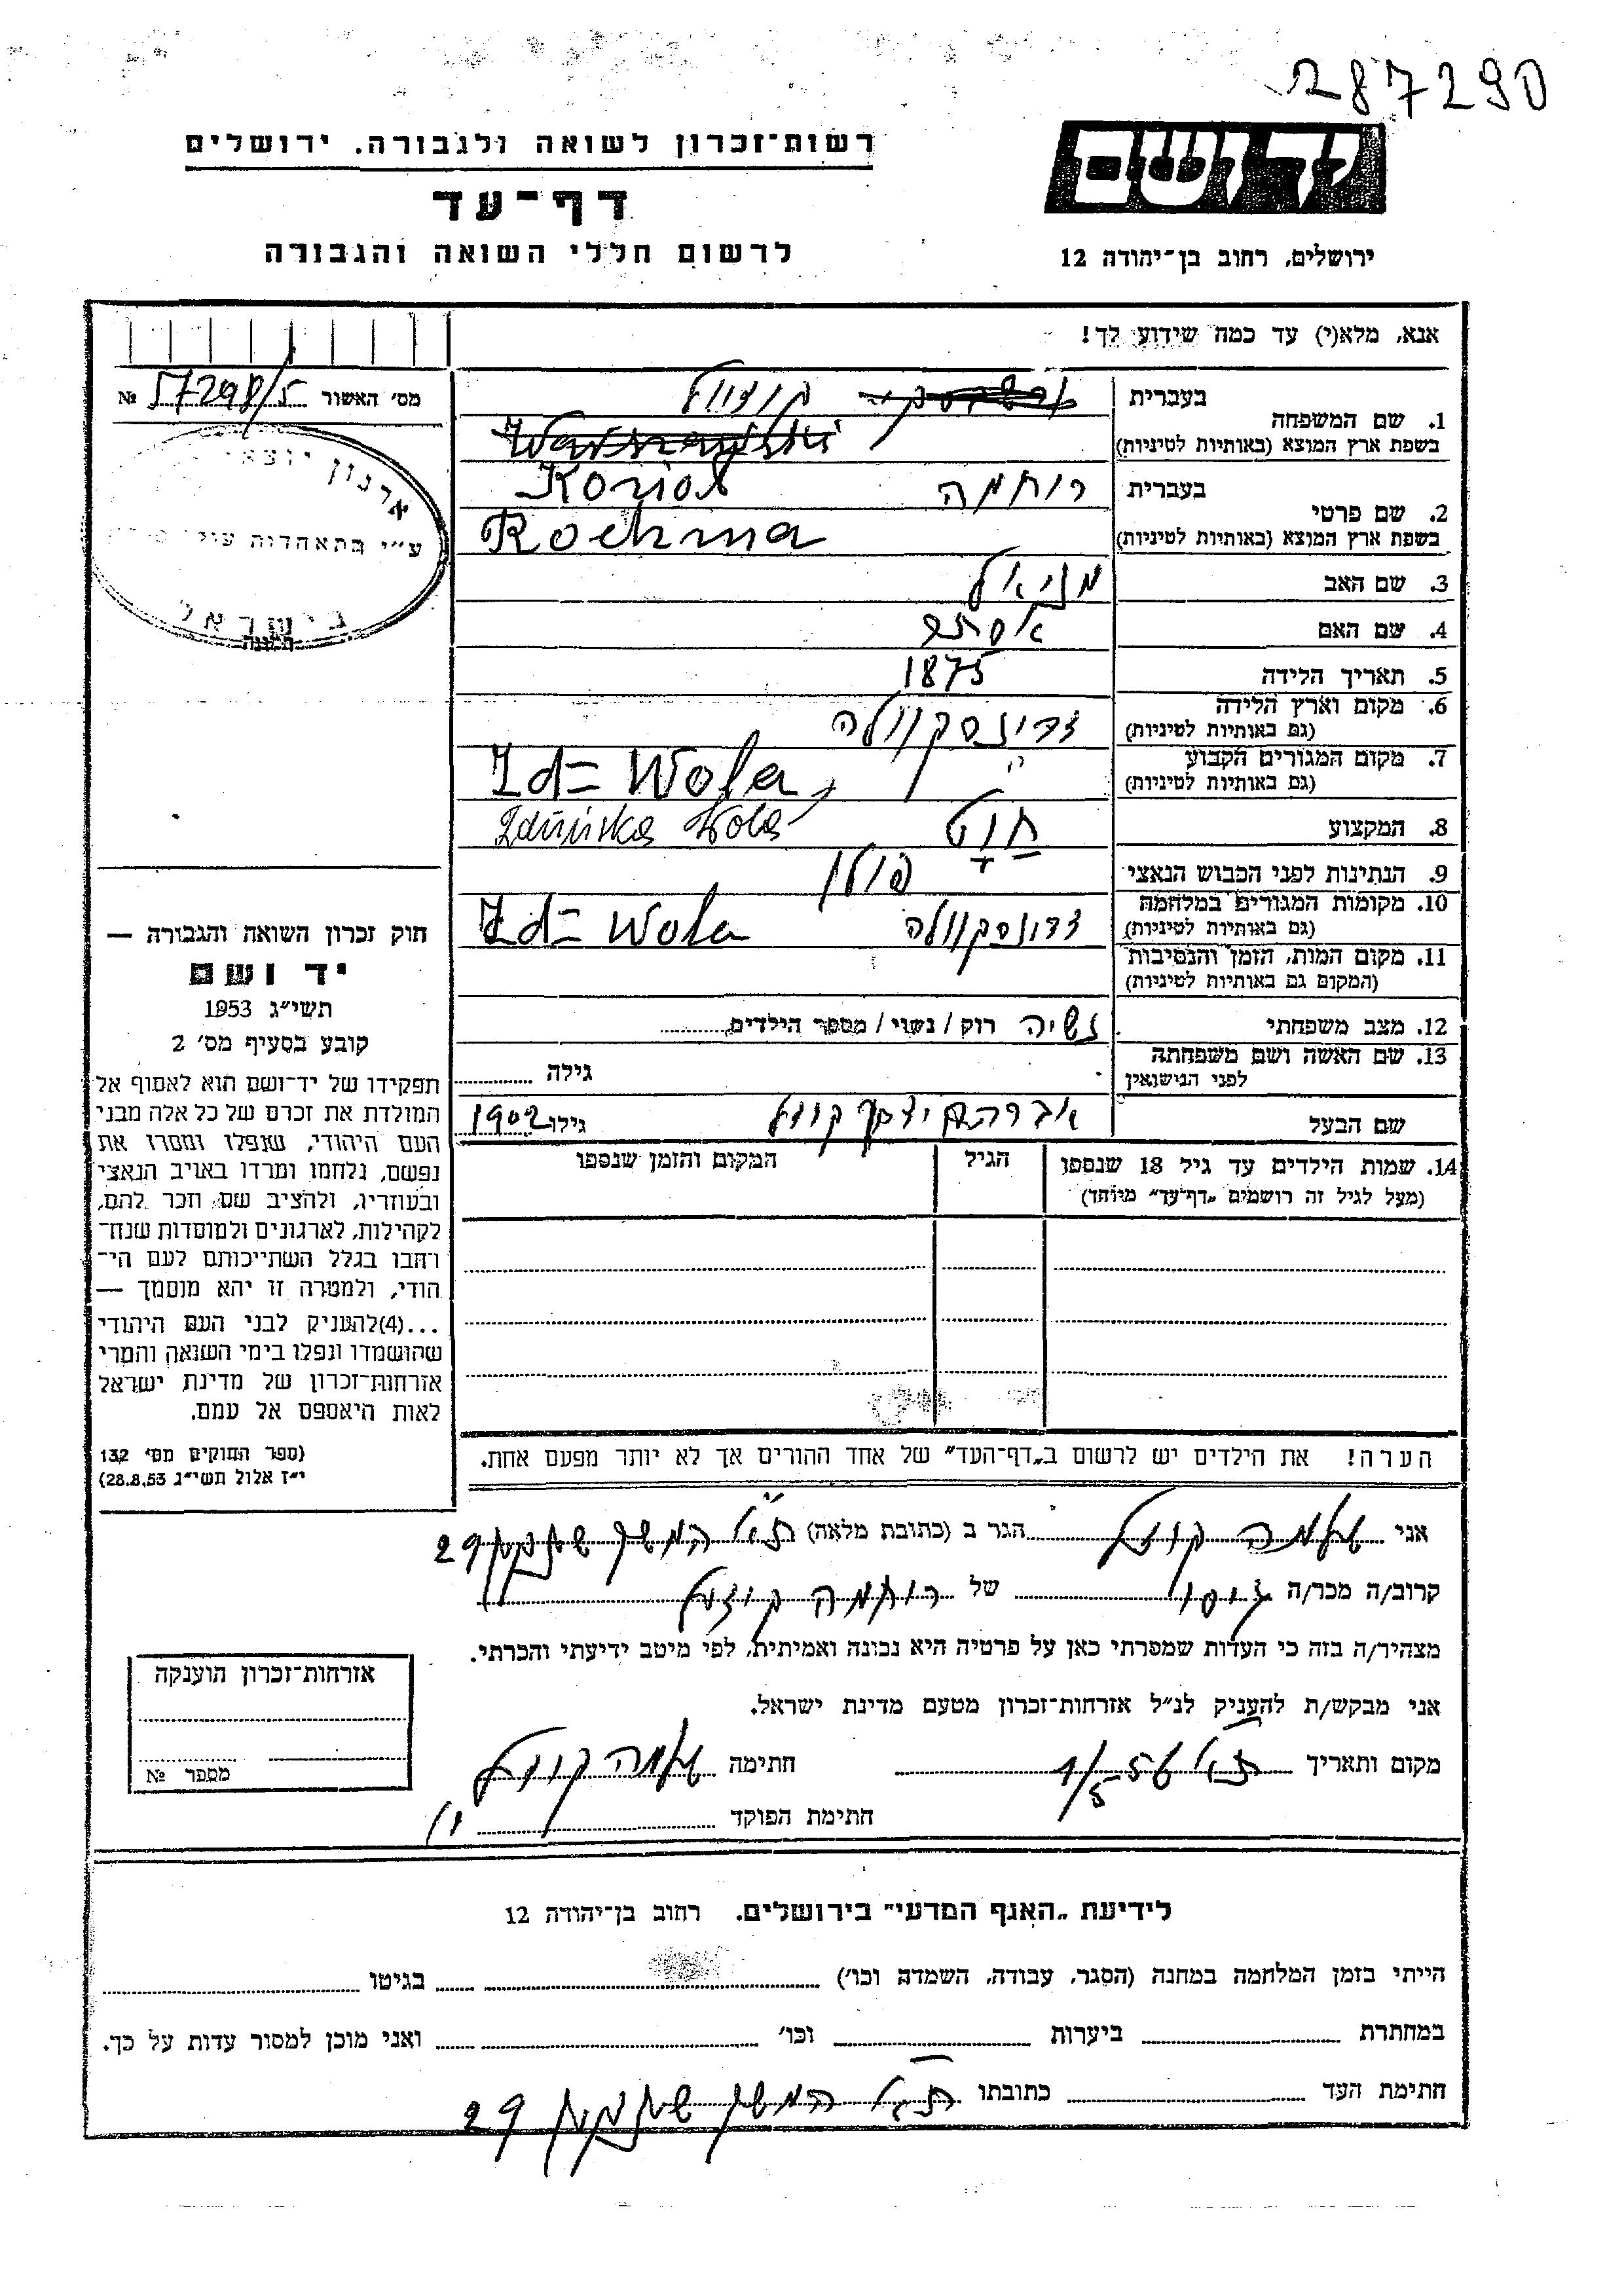 287290
רשות־זכרון לשואה ולגבורה, ירושלים
יד ושם
דף־עד
לרשום חללי השואה והגבורה
ירושלים, רחוב בן־יהודה 12
אנא, מלא(י) עד כמה שידוע לך!
מס' האשור 57298/5 №
1. שם המשפחה
בעברית קוזיול
בשפת ארץ המוצא (באותיות לטיניות) Warszawski
Koziol
2. שם פרטי
בעברית רוחמה
בשפת ארץ המוצא (באותיות לטיניות) Rochma
3. שם האב
4. שם האם אסתר
5. תאריך הלידה 1875
6. מקום וארץ הלידה
(גם באותיות לטיניות) זדונסקוולה
7. מקום המגורים הקבוע
(גם באותיות לטיניות) Zd= Wola
8. המקצוע Zduńska Wola
9. הנתינות לפני הכבוש הנאצי פולין
10. מקומות המגורים במלחמה
(גם באותיות לטיניות) זדונסקוולה Zd= Wola
11. מקום המות, הזמן והנסיבות
(המקום גם באותיות לטיניות)
12. מצב משפחתי נשויה רוק / נשוי / מספר הילדים
13. שם האשה ושם משפחתה
לפני הנישואין
גילה
שם הבעל אברהם יצחק קוזיול גילו 1902
14. שמות הילדים עד גיל 18 שנספו
(מעל לגיל זה רושמים „דף־עד" מיוחד)
הגיל
המקום והזמן שנספו
ארגון יוצאי
ע"י התאחדות עולי
בישראל
חוק זכרון השואה והגבורה —
יד ושם
תשי"ג 1953
קובע בסעיף מס' 2
תפקידו של יד־ושם הוא לאסוף אל
המולדת את זכרם של כל אלה מבני
העם היהודי, שנפלו ומסרו את
נפשם, נלחמו ומרדו באויב הנאצי
ובעוזריו, ולהציב שם וזכר להם,
לקהילות, לארגונים ולמוסדות שנח־
רחבו בגלל השתייכותם לעם הי־
הודי, ולמטרה זו יהא מוסמך —
...(4)להעניק לבני העם היהודי
שהושמדו ונפלו בימי השואה והמרי
אזרחות־זכרון של מדינת ישראל
לאות היאספם אל עמם.
(ספר החוקים מס' 132
י"ז אלול תשי"ג 28.8.53)
הערה! את הילדים יש לרשום ב„דף־העד" של אחד ההורים אך לא יותר מפעם אחת.
אני שלמה קוזיול הגר ב (כתובת מלאה) 29
קרוב/ה מכר/ה גיסו של רוחמה קוזיול
מצהיר/ה בזה כי העדות שמסרתי כאן על פרטיה היא נכונה ואמיתית, לפי מיטב ידיעתי והכרתי.
אני מבקש/ת להעניק לנ"ל אזרחות־זכרון מטעם מדינת ישראל.
מקום ותאריך ת"א 1/5 56 חתימה שלמה קוזיול
חתימת הפוקד
אזרחות־זכרון הוענקה
מספר №
לידיעת „האגף המדעי" בירושלים. רחוב בן־יהודה 12
הייתי בזמן המלחמה במחנה (הסגר, עבודה, השמדה וכו') בגיטו
במחתרת ביערות וכו' ואני מוכן למסור עדות על כך.
חתימת העד כתובתו 29